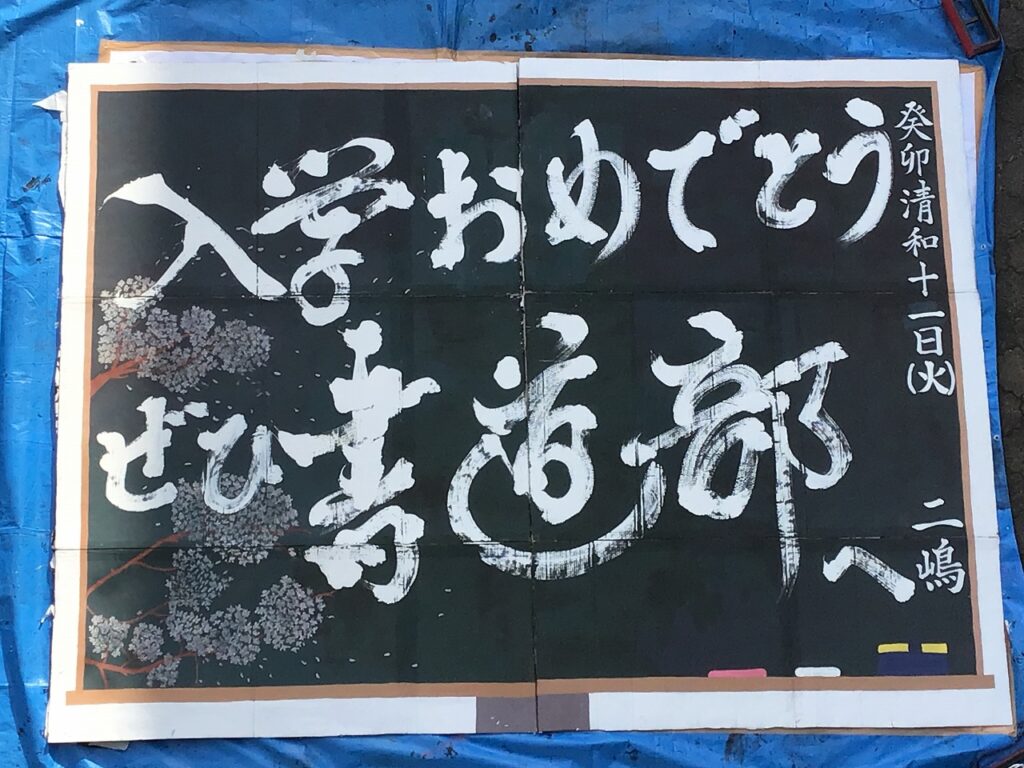 入学おめでとう
ぜひ書道部へ
癸卯清和十一日(火)
二嶋